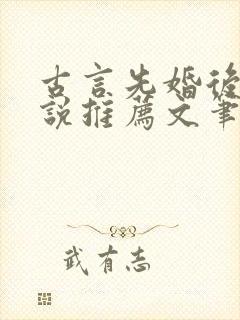 古言先婚後
說推薦文筆
武有志